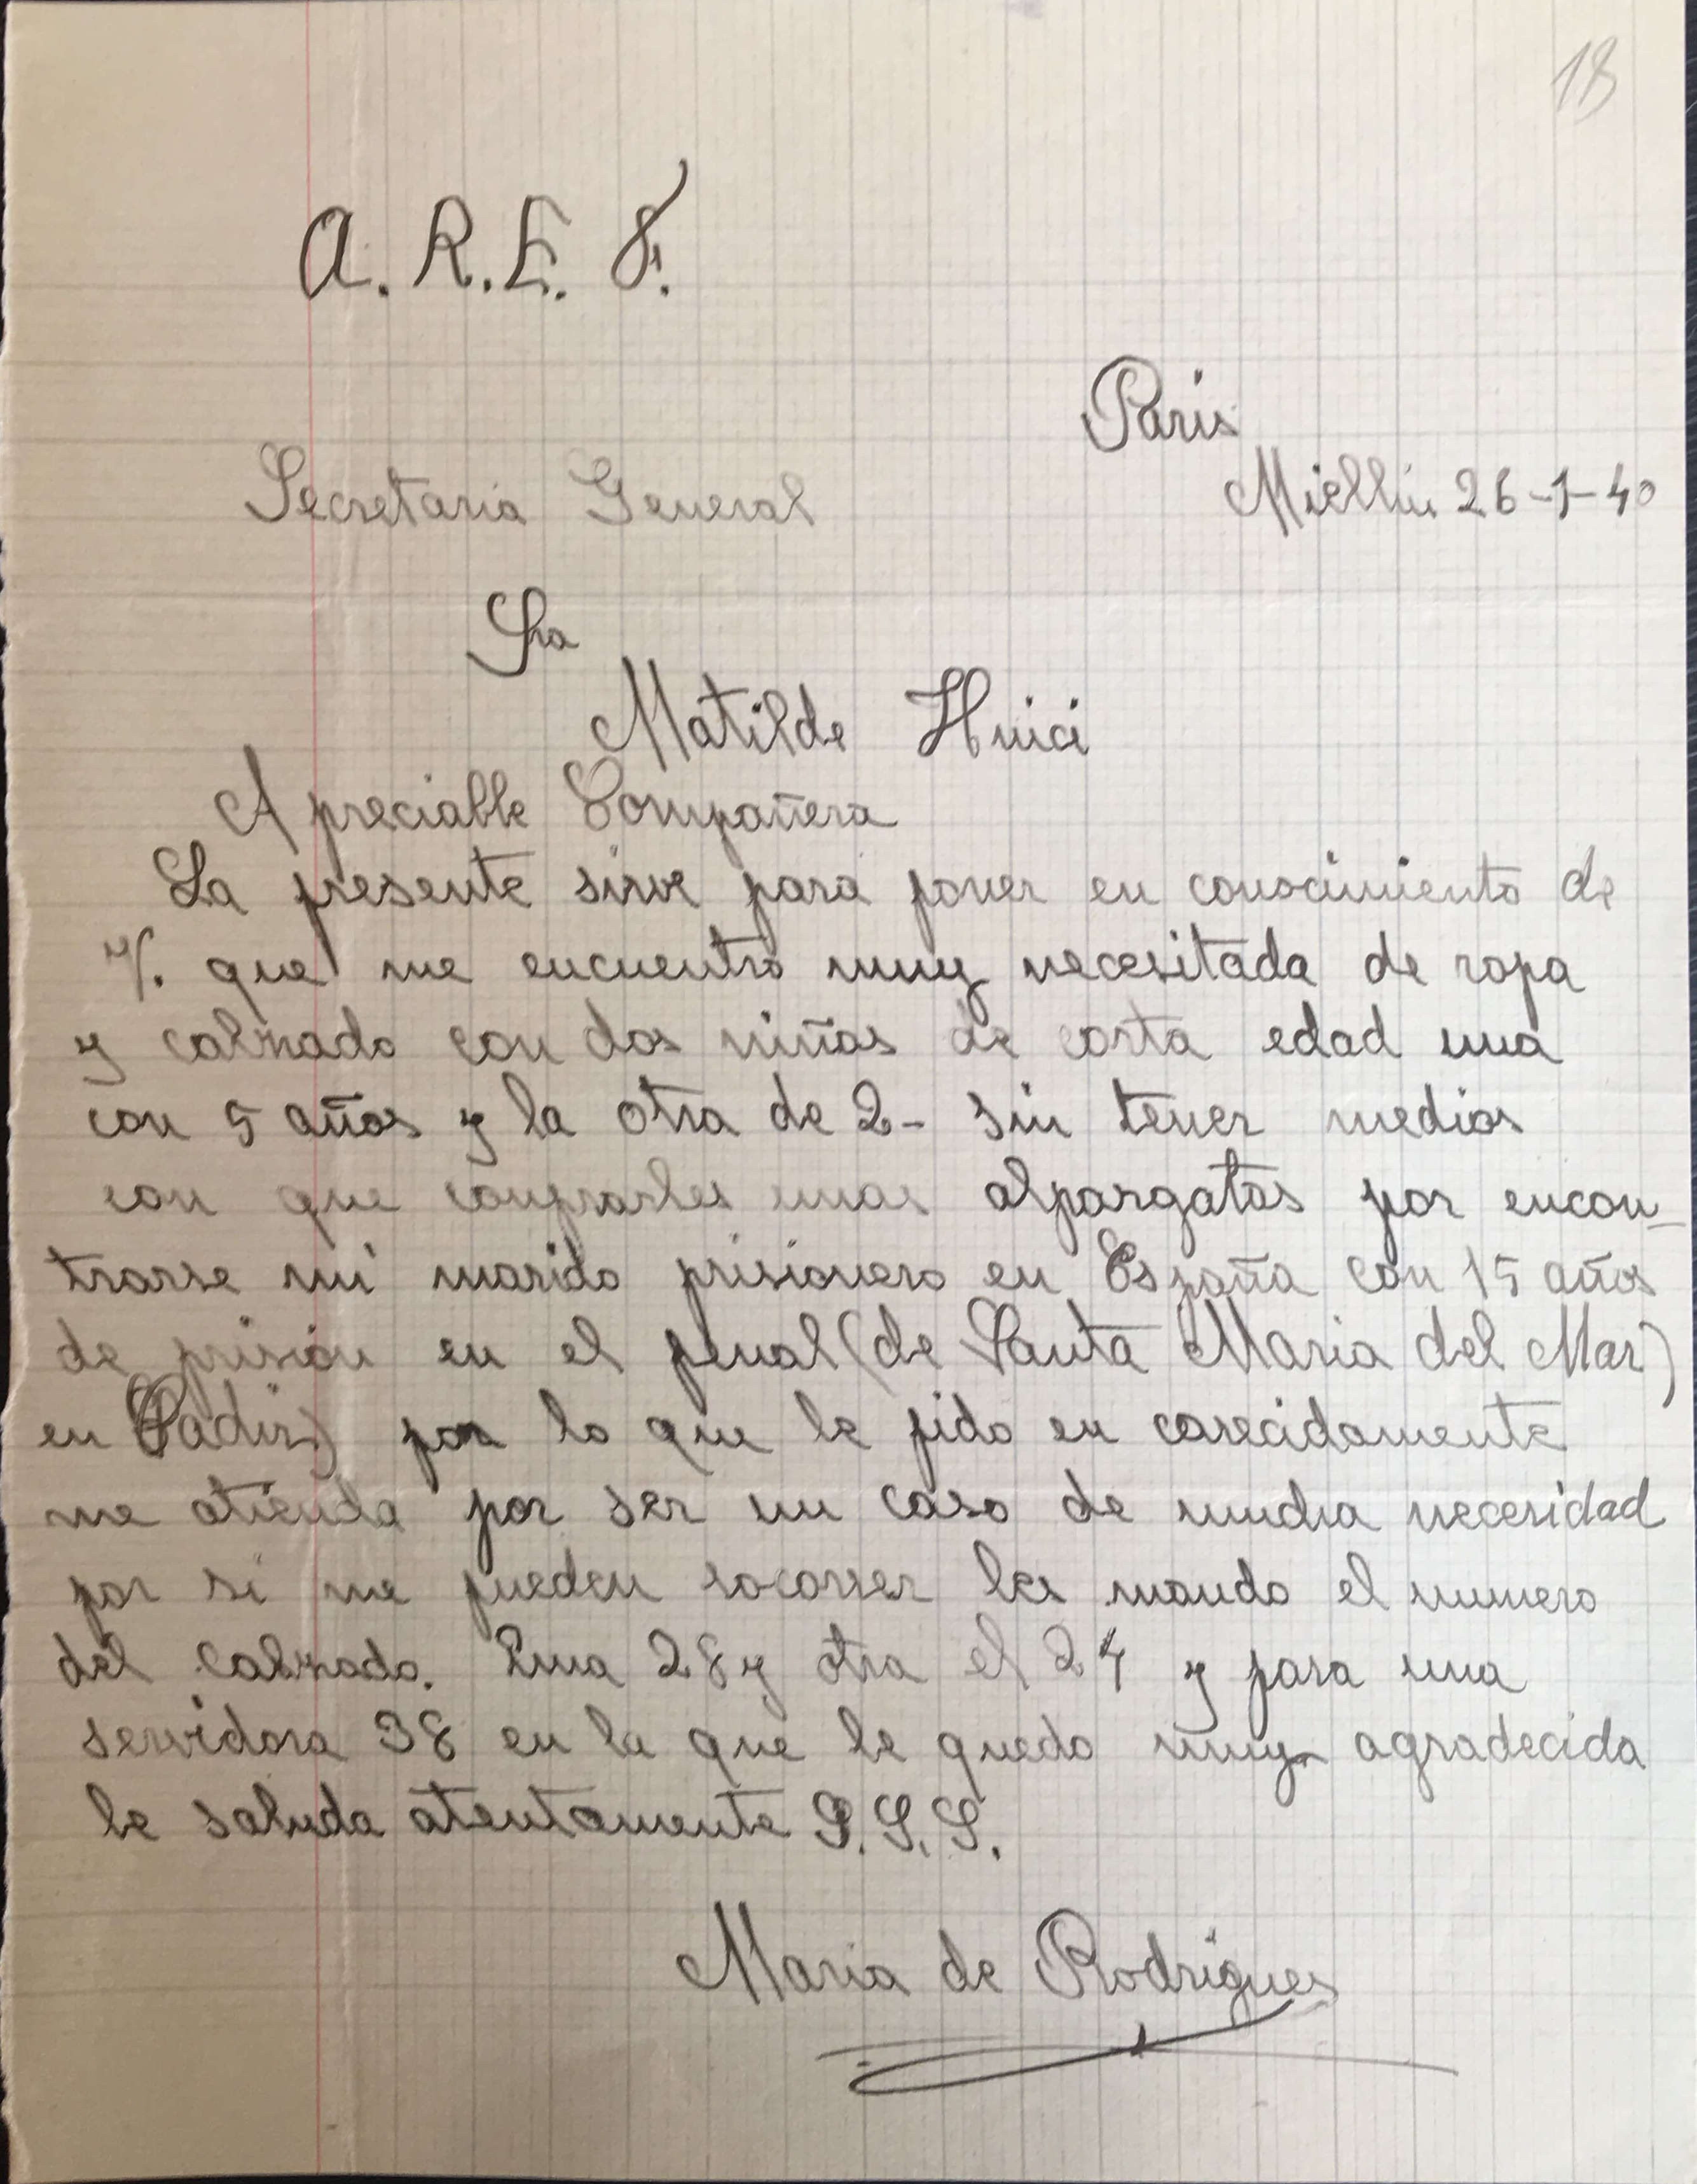 18
A. R. E. F.
Paris
Secretaria General
26-1-40
Sra
Matilde Huici
Apreciable Compañera
La presente sirve para poner en conocimiento de
V. que me encuentro muy necesitada de ropa
y calzado con dos niñas de corta edad una
con 5 años y la otra de 2- sin tener medios
con que comprarles unas alpargatas por encon-
trarse mi marido prisionero en España con 15 años
de prision en el penal (de Santa Maria del Mar)
en Cadiz) por lo que le pido en carecidamente
me atienda por ser un caso de mucha necesidad
por si me pueden socorrer les mando el numero
del calzado. Una 28 y otra el 24 y para una
servidora 38 en la que le quedo muy agradecida
le saluda atentamente S.S.S.
Maria de Rodrigues